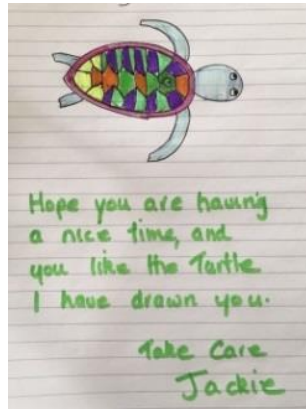 Hope you are having
a nice time, and
you like the Turtle
I have drawn you.
Take Care
Jackie